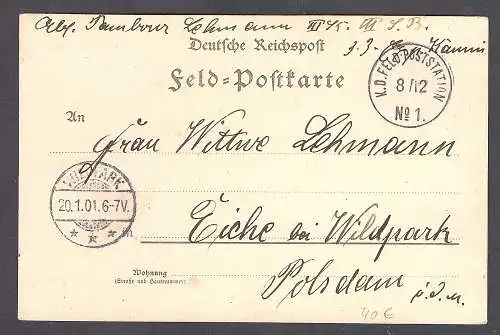 Abs. Tambour Lehmann III/5. III S.B.
Deutsche Reichspost
Feld-Postkarte
K.D. FELD-POSTSTATION
8/12
No 1.
An
Frau Wittwe Lehmann
WILDPARK
20.1.01.6-7V.
in
Eiche bei Wildpark
Wohnung
(Straße und Hausnummer)
Potsdam
40 €